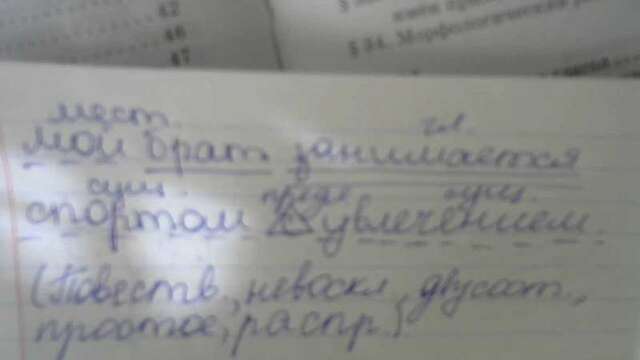 42
46
47
§ 34. Морфологический
мест. гл.
Мой брат занимается
сущ. предл. сущ.
спортом с увлечением.
(Повеств., невоскл., двусост.,
простое, распр.)